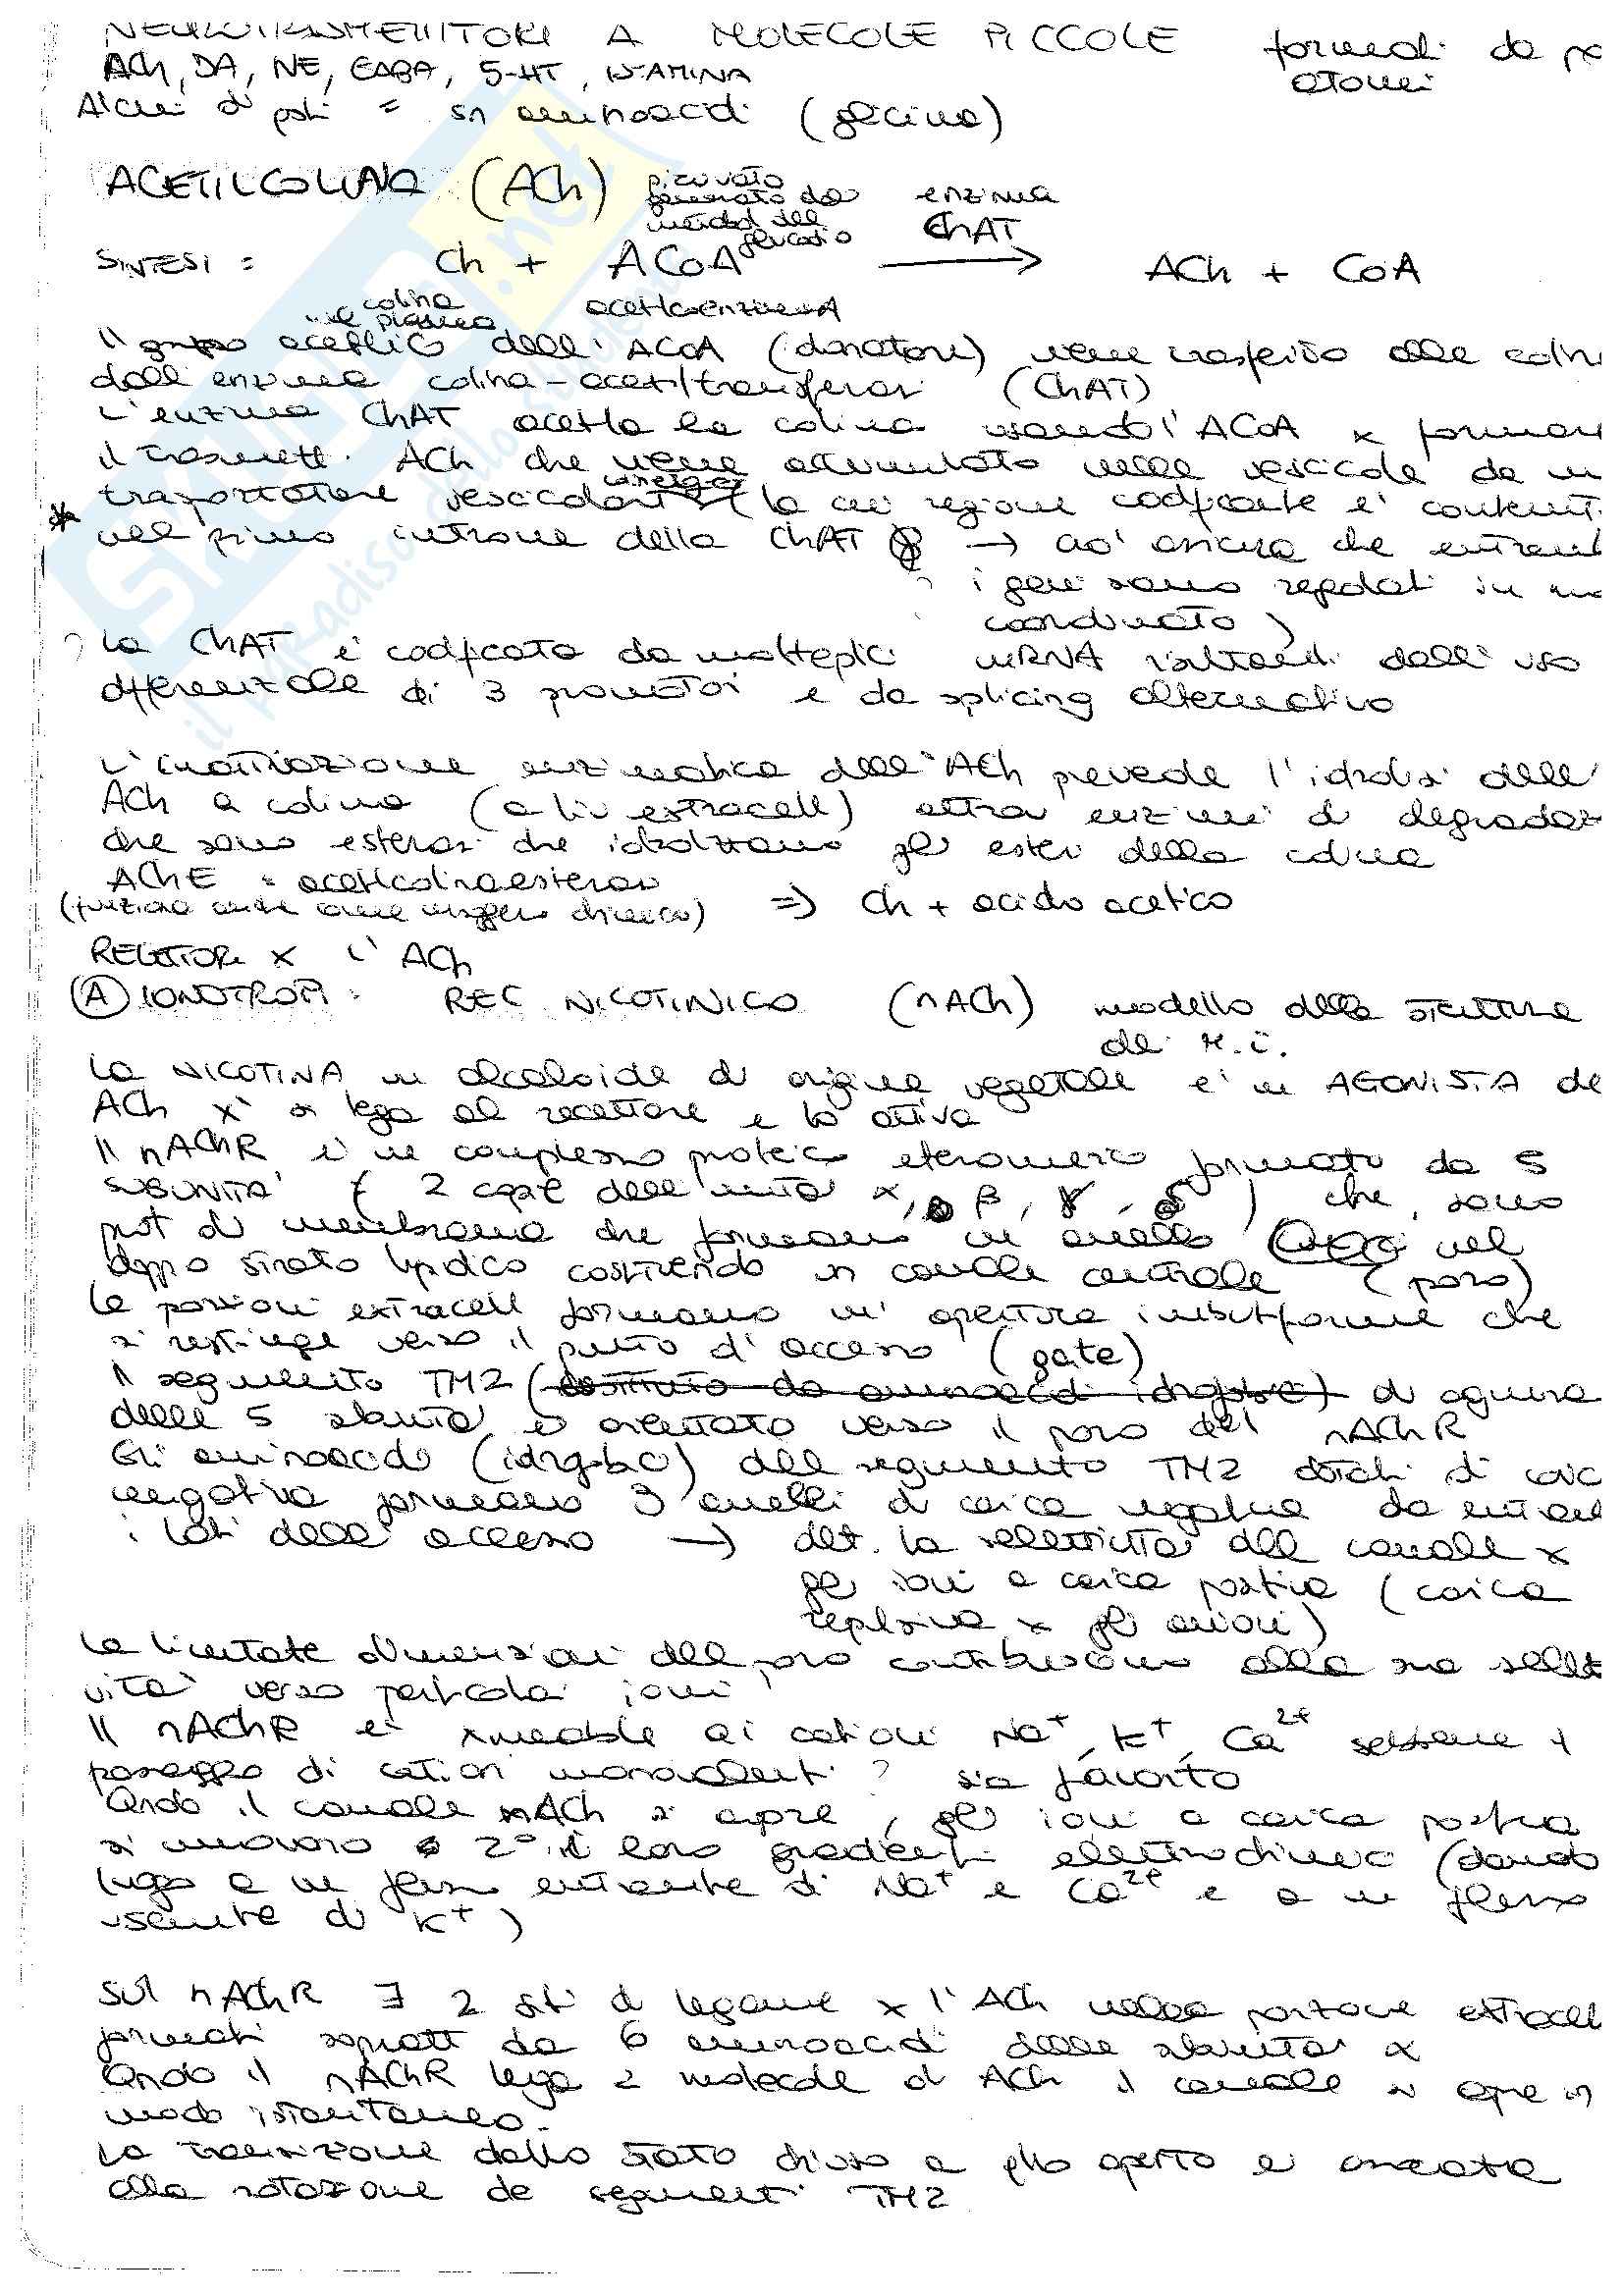 NEUROTRASMETTITORI A MOLECOLE PICCOLE formati da po
ACh, DA, NE, GABA, 5-HT, ISTAMINA atomi
Alcuni di poti = sn aminoacidi (glicina)
ACETILCOLINA (ACh) piruvato generato dal metabol del glucosio enzima ChAT
SINTESI = Ch + ACoA → ACh + CoA
colina nel plasma acetilcoenzimaA
Il gruppo acetilico dell' ACoA (donatore) viene trasferito alla colin
dall'enzima colina-acetiltransferasi (ChAT)
L'enzima ChAT acetila la colina usando l'ACoA x formare
il trasmett. ACh che viene accumulato nelle vescicole da un
trasportatore vescicolare (la cui regione codificante e' contenut
nel primo introne della ChAT → cio' assicura che entramb
i geni siano regolati in mo
coordinato)
? La ChAT e' codificata da molteplici mRNA risultanti dall'uso
differenziale di 3 promotori e da splicing alternativo
L'inattivazione enzimatica dell'ACh prevede l'idrolisi dell'
ACh a colina (a liv extracell) attrav enzimi di degradaz
che sono esterasi che idrolizzano gli esteri della colina
AChE = acetilcolinaesterasi
(funziona anche come messaggero chimico) => Ch + acido acetico
RECETTORI x L' ACh
(A) IONOTROPI: REC NICOTINICO (nACh) modello della struttura
dei R.i.
La NICOTINA un alcaloide di origine vegetale e' un AGONISTA de
ACh x' si lega al recettore e lo attiva
Il nAChR e' un complesso proteico eteromerico formato da 5
SUBUNITA' ( 2 copie dell'unita' α, β, γ, δ ) che sono
prot di membrana che formano un anello nel
doppio strato lipidico costituendo un canale centrale (poro)
Le porzioni extracell formano un' apertura imbutiforme che
si restringe verso il punto d'accesso (gate)
Il segmento TM2 (costituito da aminoacidi idrofobici) di ognuna
delle 5 subunita' e' orientato verso il poro del nAChR
Gli aminoacidi (idrofobici) del segmento TM2 dotati di caric
negativa formano 3 anelli di carica negativa da entramb
i lati dell' accesso → det. la selettivita' del canale x
gli ioni a carica positiva (carica
repulsiva x gli anioni)
Le limitate dimensioni del poro contribuiscono alla sua seletti
vita' verso particolari ioni
Il nAChR e' xmeabile ai cationi Na+, K+, Ca2+ sebbene il
passaggio di cationi monovalenti ? sia favorito
Qndo il canale nACh si apre, gli ioni a carica positiva
si muovono 2° il loro gradiente elettrochimico (dando
luogo a un flusso entrante di Na+ e Ca2+ e a un flusso
uscente di K+)
Sul nAChR ∃ 2 siti di legame x l'ACh nella porzione extracell
formati sopratt da 6 aminoacidi della subunita' α
Qndo il nAChR lega 2 molecole di ACh il canale si apre in
modo istantaneo.
La transizione dallo stato chiuso a qllo aperto e' associata
alla rotazione dei segmenti TM2